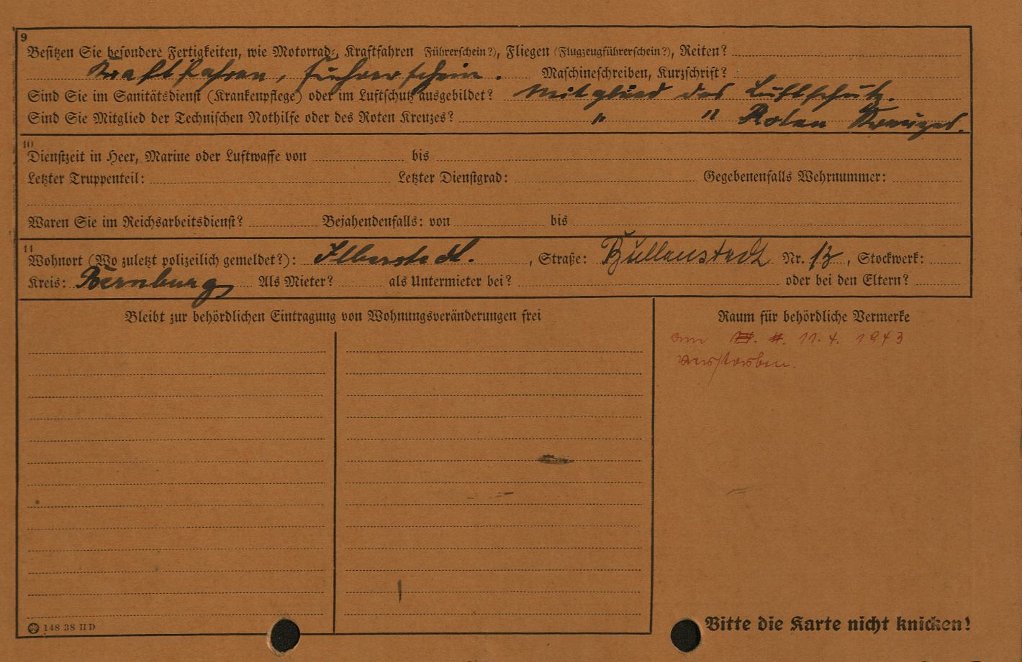 9
Besitzen Sie besondere Fertigkeiten, wie Motorrad-, Kraftfahren (Führerschein?), Fliegen (Flugzeugführerschein?), Reiten?
Kraftfahren, Führerschein. Maschineschreiben, Kurzschrift?
Sind Sie im Sanitätsdienst (Krankenpflege) oder im Luftschutz ausgebildet? Mitglied des Luftschutz.
Sind Sie Mitglied der Technischen Nothilfe oder des Roten Kreuzes? " " Roten Kreuzes.
10
Dienstzeit in Heer, Marine oder Luftwaffe von bis
Letzter Truppenteil: Letzter Dienstgrad: Gegebenenfalls Wehrnummer:
Waren Sie im Reichsarbeitsdienst? Bejahendenfalls: von bis
11
Wohnort (Wo zuletzt polizeilich gemeldet?): Ilberstedt. , Straße: Nr. , Stockwerk:
Kreis: Bernburg Als Mieter? als Untermieter bei? oder bei den Eltern?
Bleibt zur behördlichen Eintragung von Wohnungsveränderungen frei
Raum für behördliche Vermerke
am 11. 4. 1943
verstorben.
148 38 II D
Bitte die Karte nicht knicken!